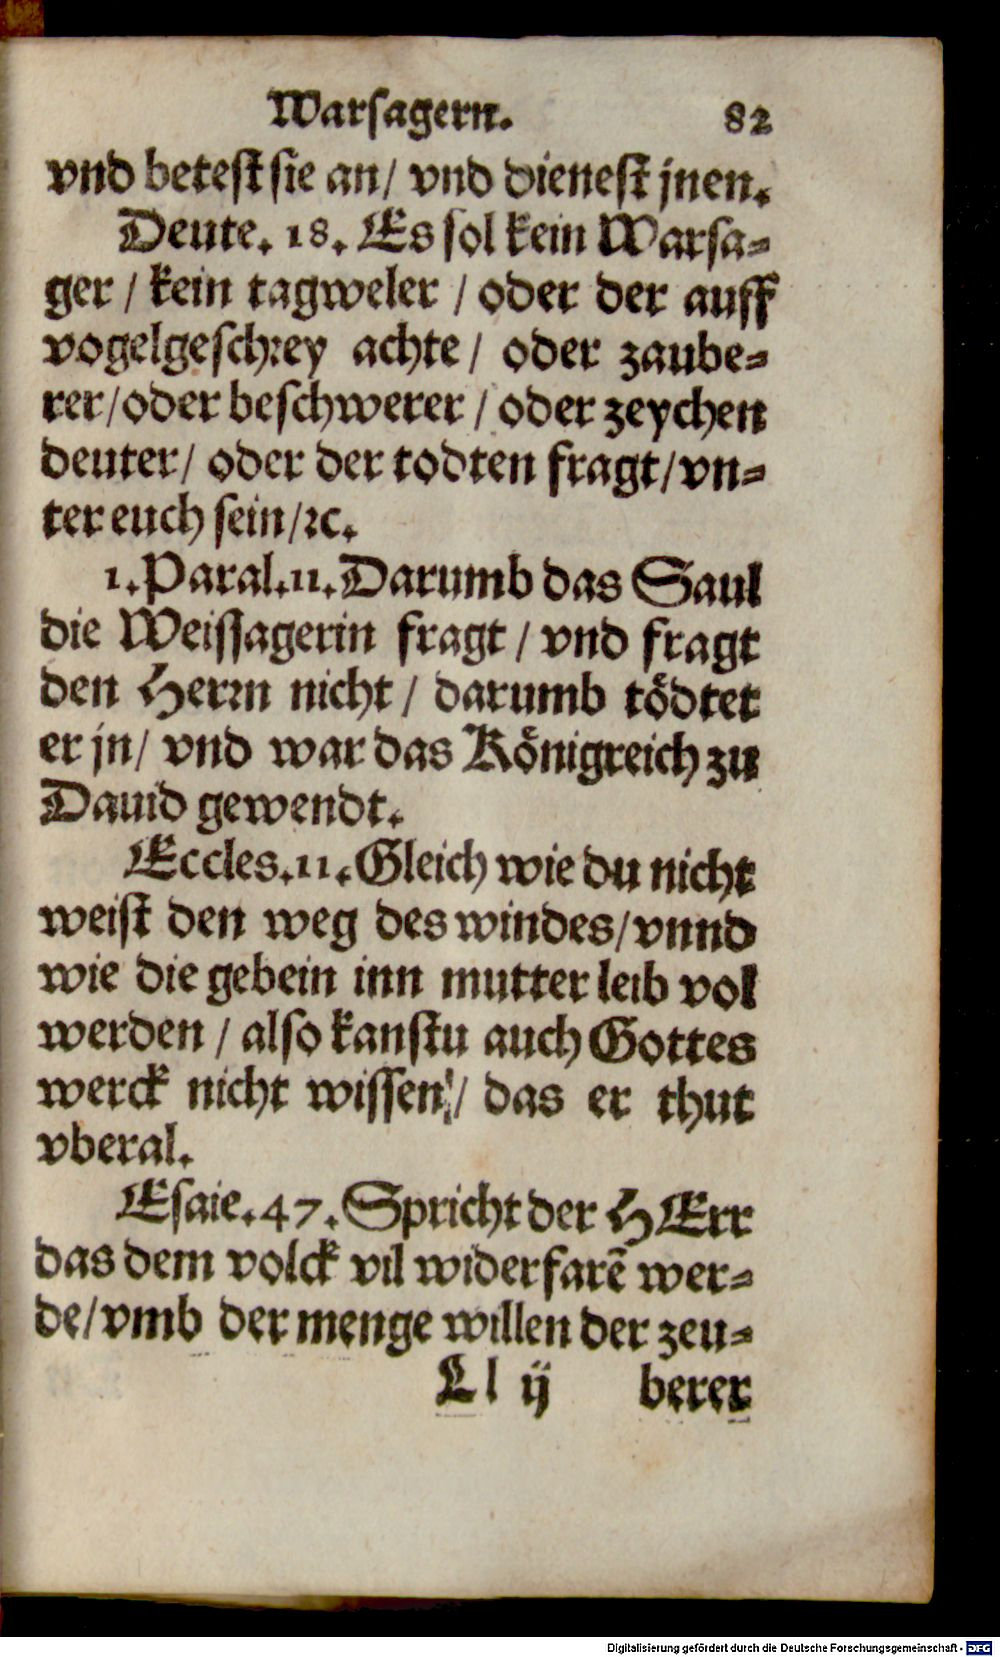 Warsagern. 82
vnd betest sie an/ vnd dienest jnen.
Deute. 18. Es sol kein Warsa-
ger / kein tagweler / oder der auff
vogelgeschrey achte / oder zaube-
rer/oder beschwerer / oder zeychen
deuter/ oder der todten fragt/vn-
ter euch sein/ꝛc.
1. Paral. 11. Darumb das Saul
die Weissagerin fragt / vnd fragt
den Herrn nicht / darumb tödtet
er jn/ vnd war das Königreich zu
Dauid gewendt.
Eccles. 11. Gleich wie du nicht
weist den weg des windes/vnnd
wie die gebein inn mutter leib vol
werden / also kanstu auch Gottes
werck nicht wissen / das er thut
vberal.
Esaie. 47. Spricht der HErr
das dem volck vil widerfarẽ wer-
de/vmb der menge willen der zeu-
Ll ij berer
Digitalisierung gefördert durch die Deutsche Forschungsgemeinschaft - DFG